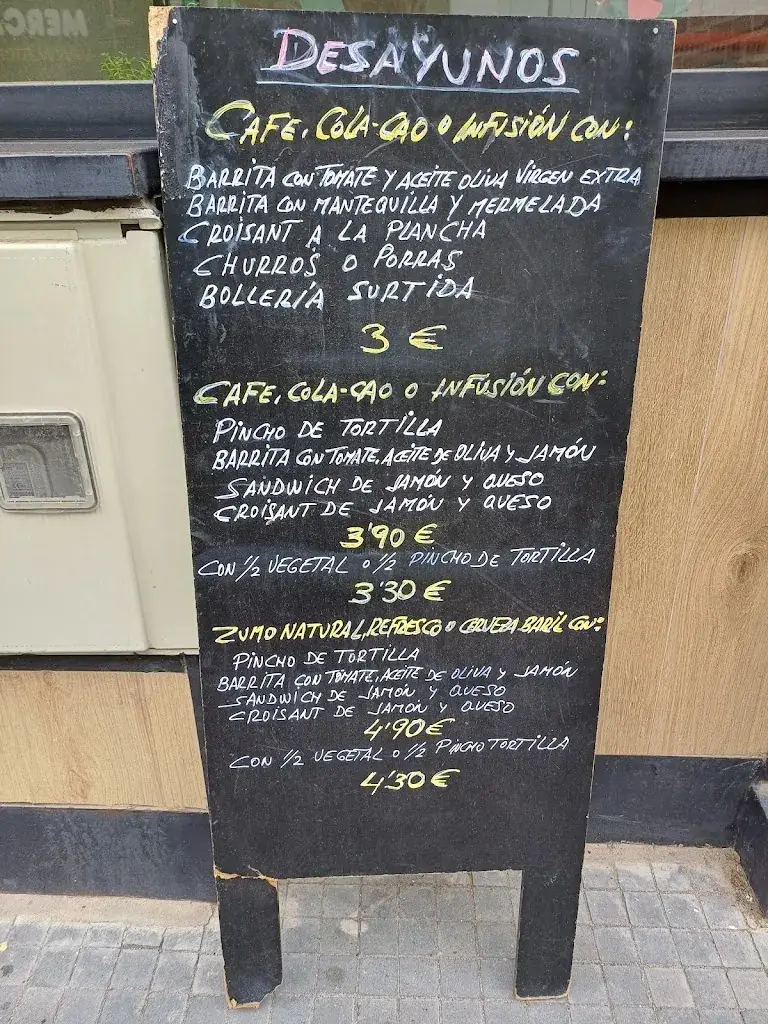 DESAYUNOS
CAFE, COLA-CAO O INFUSIÓN CON:
BARRITA CON TOMATE Y ACEITE OLIVA VIRGEN EXTRA
BARRITA CON MANTEQUILLA Y MERMELADA
CROISANT A LA PLANCHA
CHURROS O PORRAS
BOLLERÍA SURTIDA
3 €
CAFE, COLA-CAO O INFUSIÓN CON:
PINCHO DE TORTILLA
BARRITA CON TOMATE, ACEITE DE OLIVA Y JAMÓN
SANDWICH DE JAMÓN Y QUESO
CROISANT DE JAMÓN Y QUESO
3'90 €
CON 1/2 VEGETAL O 1/2 PINCHO DE TORTILLA
3'30 €
ZUMO NATURAL, REFRESCO O CERVEZA BARIL CON:
PINCHO DE TORTILLA
BARRITA CON TOMATE, ACEITE DE OLIVA Y JAMÓN
SANDWICH DE JAMÓN Y QUESO
CROISANT DE JAMÓN Y QUESO
4'90 €
CON 1/2 VEGETAL O 1/2 PINCHO TORTILLA
4'30 €